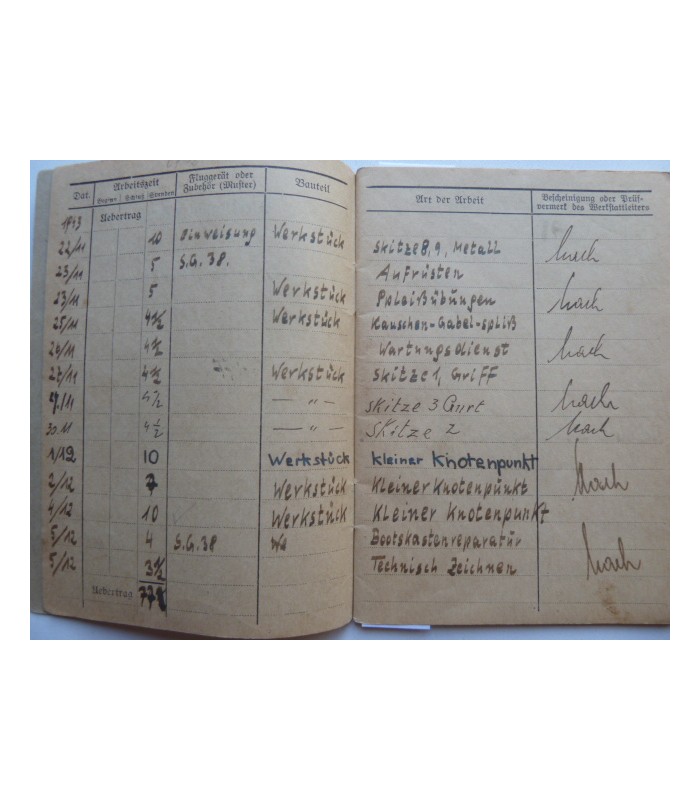 Dat. Arbeitszeit Fluggerät oder Zubehör (Muster) Bauteil Art der Arbeit Bescheinigung oder Prüfvermerk des Werkstattleiters
Beginn Schluß Stunden
1943 Uebertrag
22/11 10 Einweisung Werkstück Skitze 8, 9, Metall
23/11 5 S.G. 38. Aufrüsten
23/11 5 Werkstück Spleißübungen
25/11 4½ Werkstück Kauschen-Gabel-spliß
26/11 4½ Wartungsdienst
27/11 4½ Werkstück Skitze 1, Griff
4½ — " — Skitze 3 Gurt
30.11 4½ — " — Skitze 2
1/12 10 Werkstück Kleiner Knotenpunkt
2/12 7 Werkstück Kleiner Knotenpunkt
4/12 10 Werkstück Kleiner Knotenpunkt
5/12 4 S.G. 38 We Bootskastenreparatur
5/12 3½ Technisch Zeichnen
Uebertrag